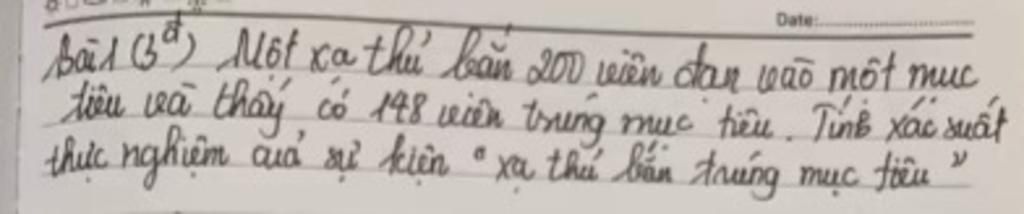 Date:
Bài 1 (3đ) Một xạ thủ bắn 200 viên đạn vào một mục
tiêu và thấy có 148 viên trúng mục tiêu. Tính xác suất
thực nghiệm quả sự kiện "xạ thủ bắn trúng mục tiêu"